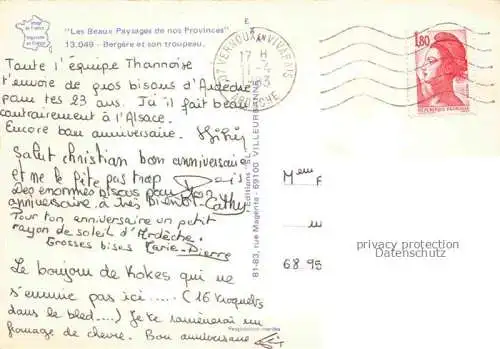 "Les Beaux Paysages de nos Provinces"
13.049 - Bergère et son troupeau.
E
Toute l'équipe Thannoise
t'envoie de gros bisous d'Ardèche
pour tes 23 ans. Ici il fait beau
contrairement à l'Alsace.
Encore bon anniversaire.
Salut christian bon anniversaire
et ne le fête pas trop
Des énormes bisous pour ton
anniversaire à très bientôt. Cathy
Pour ton anniversaire un petit
rayon de soleil d'Ardèche.
Grosses bises Marie-Pierre
Le bonjour de Kokes qui ne
s'ennuie pas ici ..... (16 troquets
dans le bled ....) Je te ramènerai un
fromage de chèvre. Bon anniversaire
07 VERNOUX EN VIVARAIS
17 H
ARDECHE
1,80
81-83, rue Magenta - 69100 VILLEURBANNE
Reproduction interdite
M
68.95
privacy protection
Datenschutz